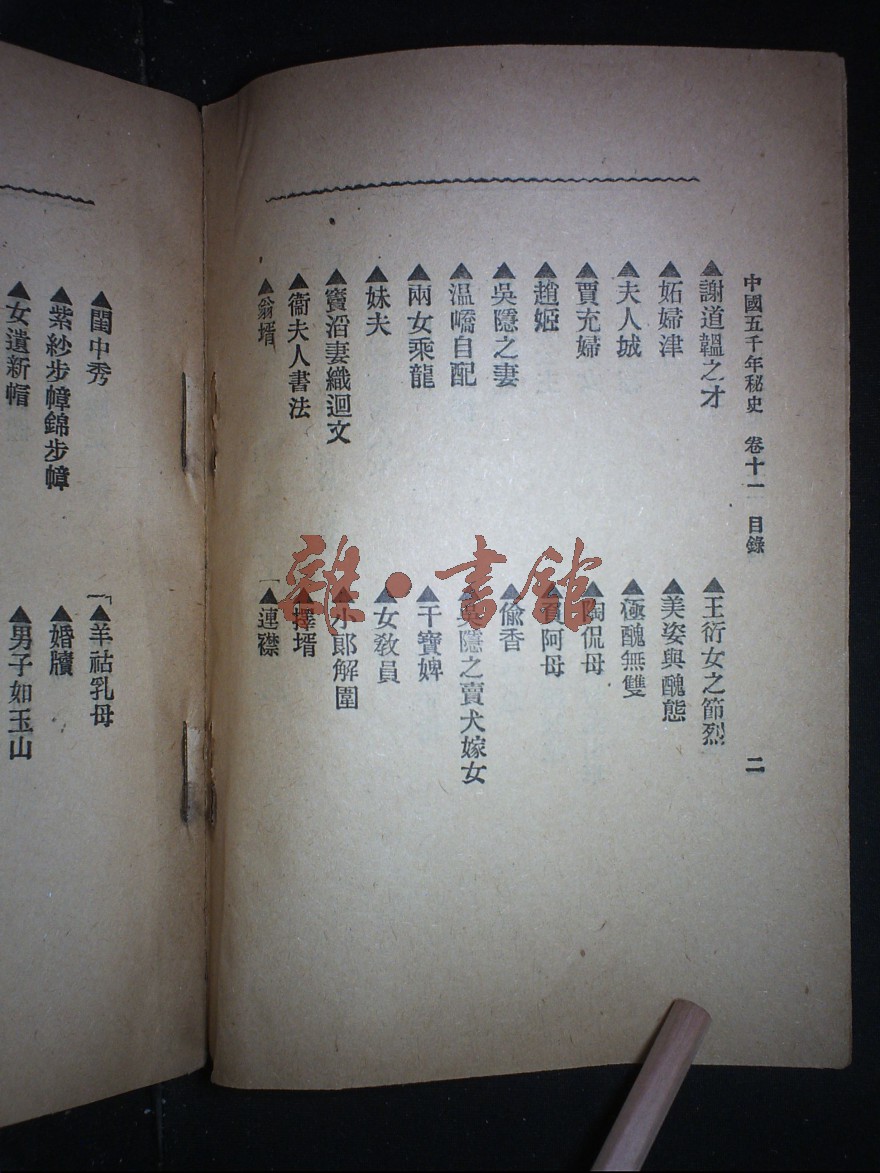 中國五千年秘史 卷十一 目錄 二
▲謝道韞之才
▲妬婦津
▲夫人城
▲賈充婦
▲趙姬
▲吳隱之妻
▲温嶠自配
▲兩女乘龍
▲妹夫
▲竇滔妻織迴文
▲衞夫人書法
▲翁壻
▲王衍女之節烈
▲美姿與醜態
▲極醜無雙
▲陶侃母
▲阿母
▲偸香
▲吳隱之賣犬嫁女
▲干寶婢
▲女敎員
▲小郞解圍
▲擇壻
▲連襟
▲閨中秀
▲紫紗步幛錦步幛
▲女遺新帽
▲羊祜乳母
▲婚牘
▲男子如玉山
雜·書館